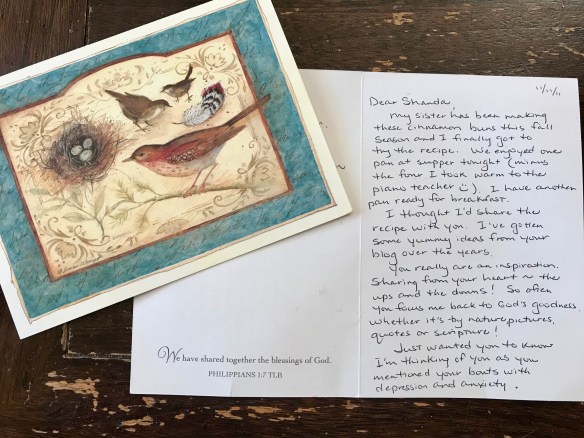 11/11/11
Dear Shanda,
My sister has been making
these cinnamon buns this fall
season and I finally got to
try the recipe. We enjoyed one
pan at supper tonight (minus
the four I took warm to the
piano teacher ☺). I have another
pan ready for breakfast.
I thought I'd share the
recipe with you. I've gotten
some yummy ideas from your
blog over the years.
You really are an inspiration.
Sharing from your heart ~ the
ups and the downs! So often
you focus me back to God's goodness
whether it's by nature pictures,
quotes or scripture!
Just wanted you to know
I'm thinking of you as you
mentioned your bouts with
depression and anxiety.
We have shared together the blessings of God.
PHILIPPIANS 1:7 TLB